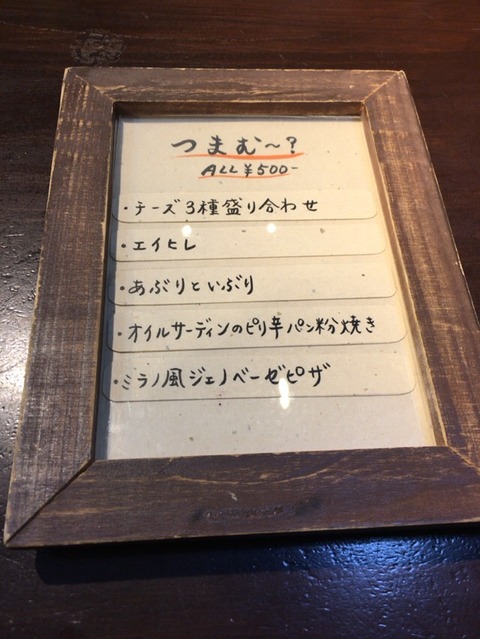 つまむ～?
ALL ¥500-
・チーズ3種盛り合わせ
・エイヒレ
・あぶりといぶり
・オイルサーディンのピリ辛パン粉焼き
・ミラノ風ジェノベーゼピザ